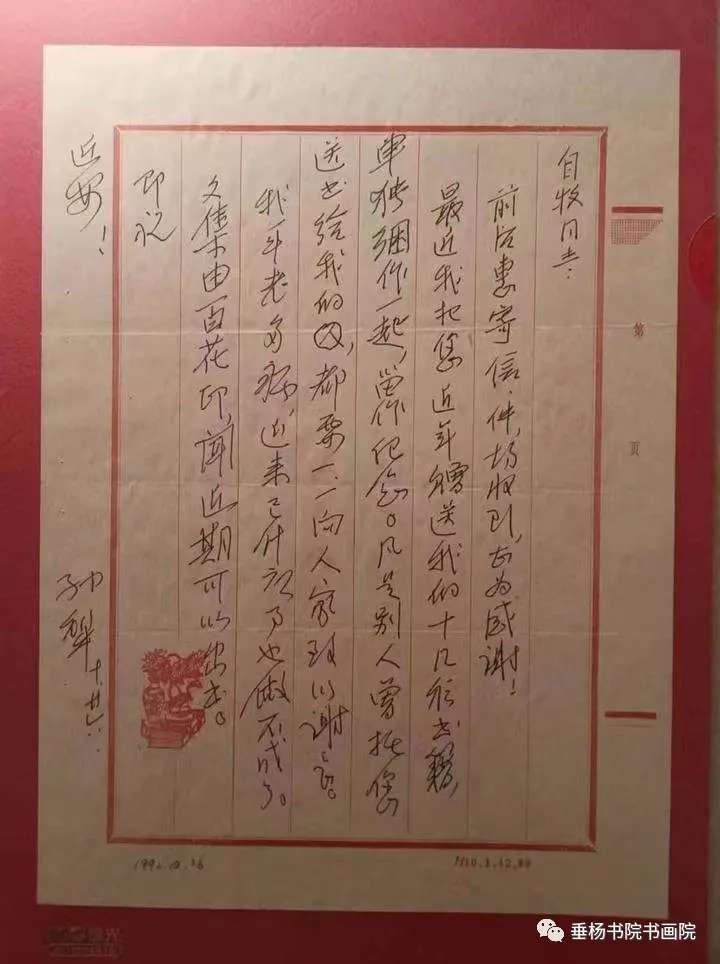 自牧同志：
前后惠寄信、件，均收到，甚为感谢！
最近我把您近年赠送我的十几种书籍，
单独捆作一起，留作纪念。凡是别人曾托您
送书给我的，都要一一向人家致以谢意。
我年老多病，近来已什么事也做不成了。
文集由百花印，闻近期可以出书。
即祝
近安！
孙犁 十·廿六
第
页
垂杨书院书画院